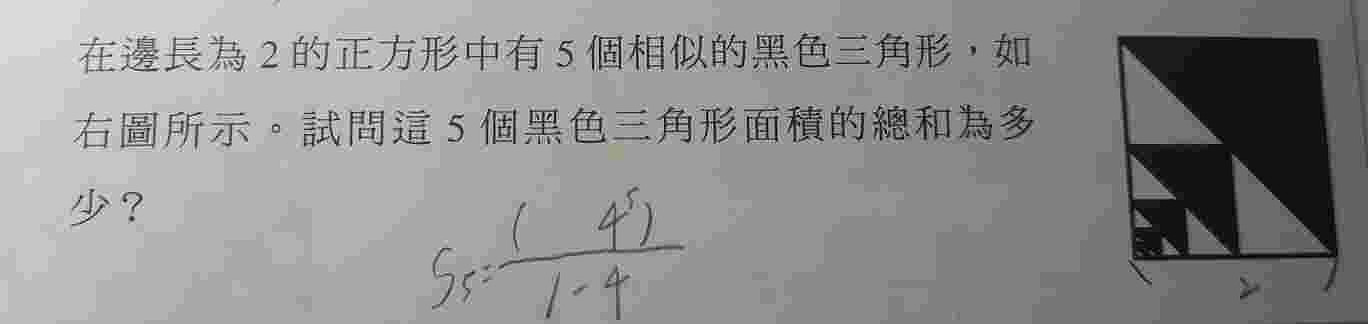 在邊長為 2 的正方形中有 5 個相似的黑色三角形，如
右圖所示。試問這 5 個黑色三角形面積的總和為多
少？
S₅=( 4⁵)/1-4
2